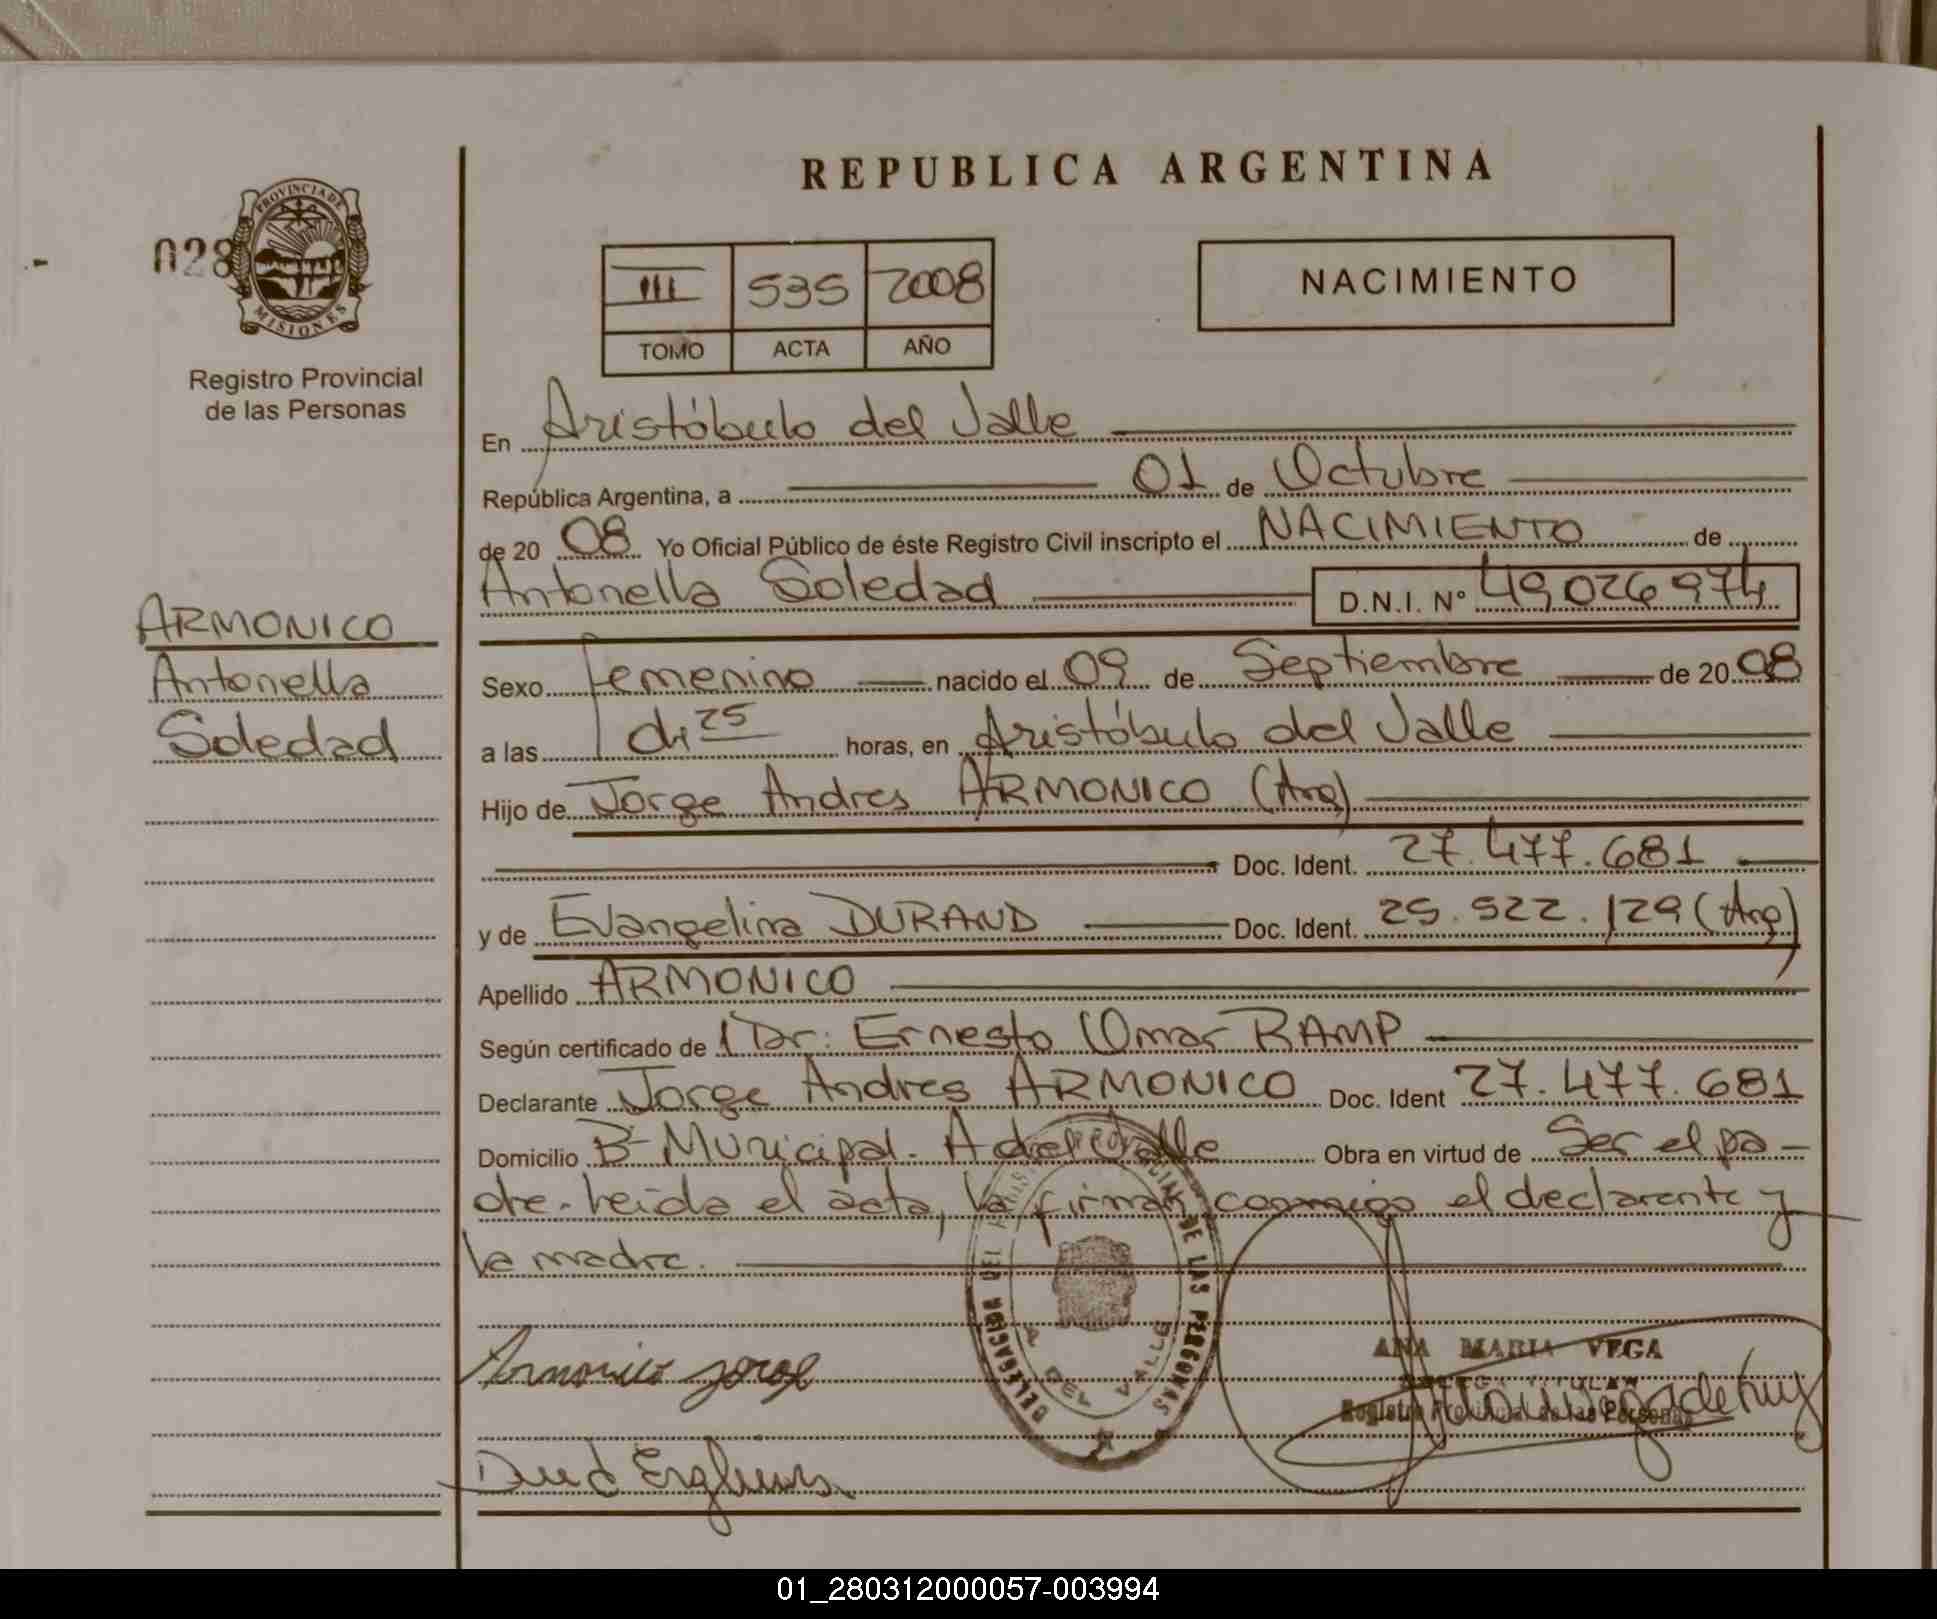 REPUBLICA ARGENTINA
028
PROVINCIA DE
MISIONES
Registro Provincial
de las Personas
III 535 2008
TOMO ACTA AÑO
NACIMIENTO
En Aristóbulo del Valle
República Argentina, a 01 de Octubre
de 20 08 Yo Oficial Público de éste Registro Civil inscripto el NACIMIENTO de
Antonella Soledad D.N.I. N° 49026974
ARMONICO
Antonella
Soledad
Sexo femenino nacido el 09 de Septiembre de 20 08
a las 25 horas, en Aristóbulo del Valle
Hijo de Jorge Andres ARMONICO (Arg)
Doc. Ident. 27.477.681
y de Evangelina DURAND Doc. Ident. 25.522.129 (Arg)
Apellido ARMONICO
Según certificado de Dr: Ernesto Omar RAMP
Declarante Jorge Andres ARMONICO Doc. Ident 27.477.681
Domicilio B- Municipal. A del Valle Obra en virtud de Ser el pa-
dre. Leida el acta, la firman conmigo el declarante y
la madre.
DELEGACION DEL REGISTRO PROVINCIAL DE LAS PERSONAS
A DEL VALLE
Armonico Jorge
ANA MARIA VEGA
TITULAR
Registro Provincial de las Personas
01_280312000057-003994